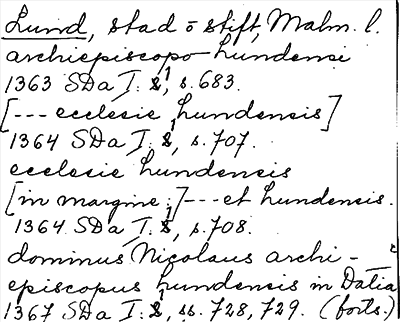 Lund, stad o stift, Malm. l.
archiepiscopo lundensi
1363 SDa I: 1, s. 683.
[--- ecclesie lundensis]
1364 SDa I: 1, s. 707.
ecclesie lundensis
[in margine:] --- et lundensis.
1364 SDa I: 1, s. 708.
dominus Nicolaus archi-
episcopus lundensis in Datia
1367 SDa I: 1, ss. 728, 729. (forts.)